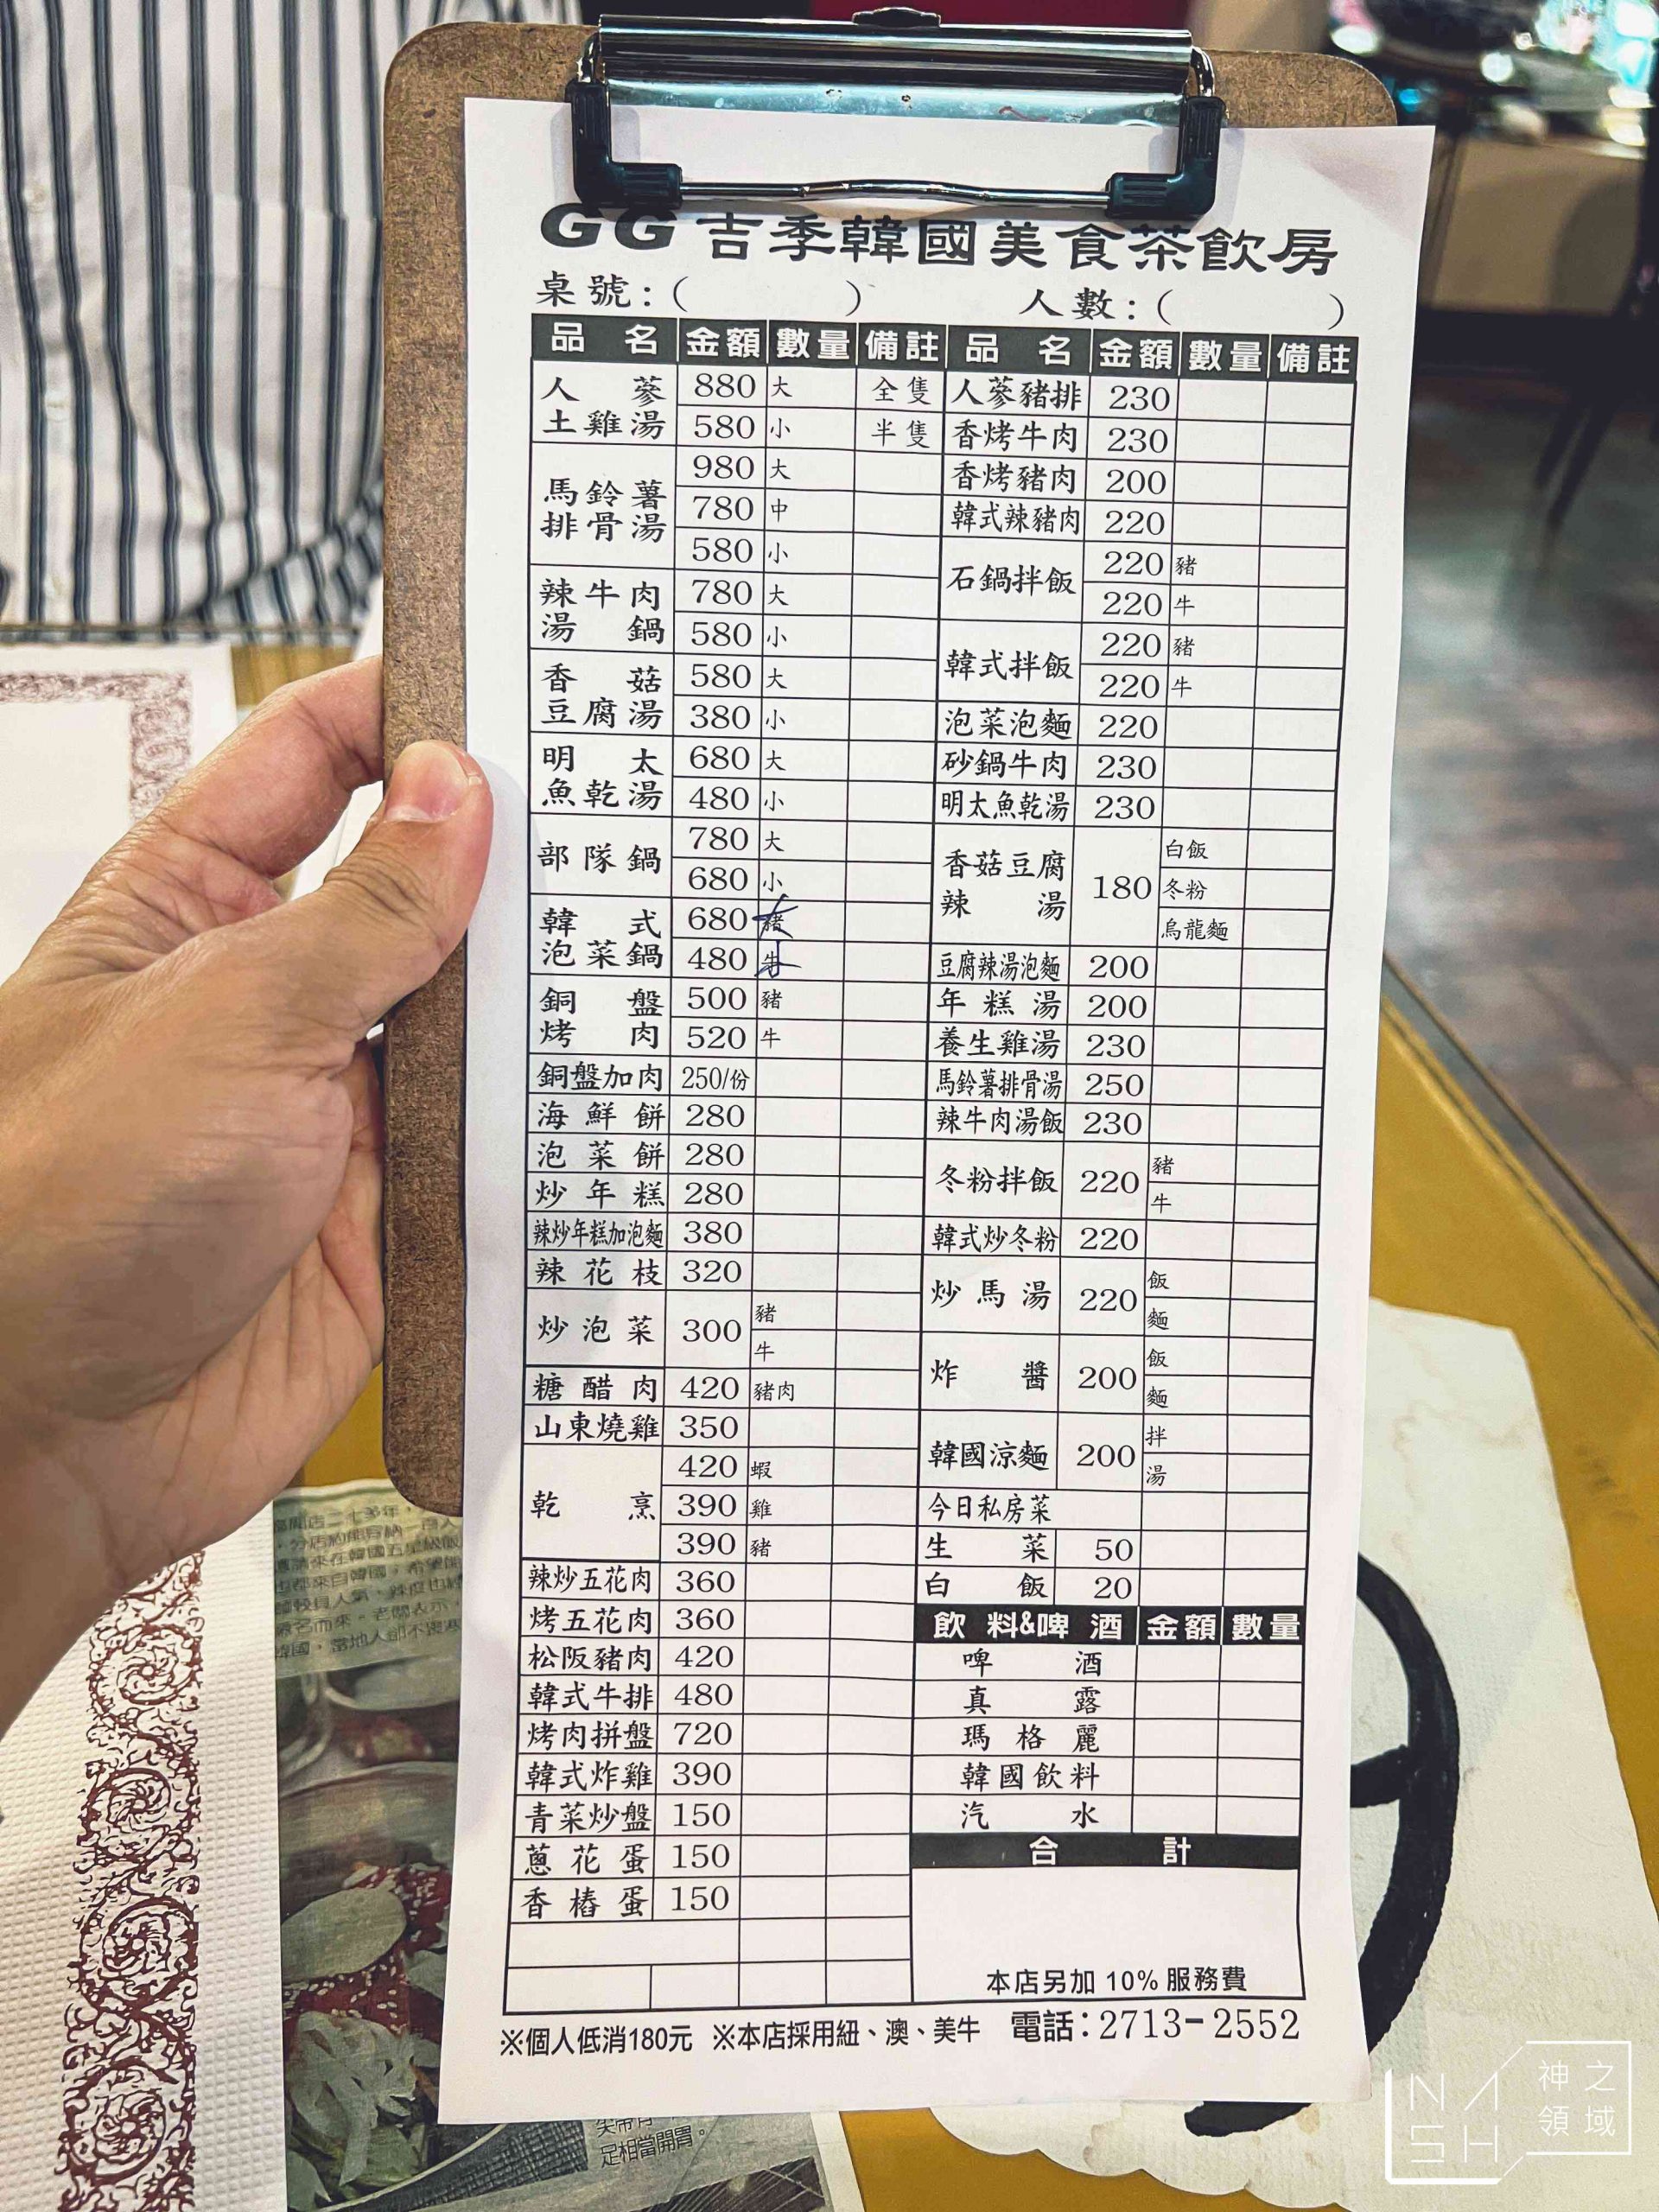 GG 吉季韓國美食茶飲房
桌號：（　　） 人數：（　　）
品名 金額 數量 備註
人蔘土雞湯 880 大 全隻
580 小 半隻
馬鈴薯排骨湯 980 大
780 中
580 小
辣牛肉湯鍋 780 大
580 小
香菇豆腐湯 580 大
380 小
明太魚乾湯 680 大
480 小
部隊鍋 780 大
680 小
韓式泡菜鍋 680 大
480 小
銅盤烤肉 500 豬
520 牛
銅盤加肉 250/份
海鮮餅 280
泡菜餅 280
炒年糕 280
辣炒年糕加泡麵 380
辣花枝 320
炒泡菜 300 豬
牛
糖醋肉 420 豬肉
山東燒雞 350
乾烹 420 蝦
390 雞
390 豬
辣炒五花肉 360
烤五花肉 360
松阪豬肉 420
韓式牛排 480
烤肉拼盤 720
韓式炸雞 390
青菜炒盤 150
蔥花蛋 150
香樁蛋 150
品名 金額 數量 備註
人蔘豬排 230
香烤牛肉 230
香烤豬肉 200
韓式辣豬肉 220
石鍋拌飯 220 豬
220 牛
韓式拌飯 220 豬
220 牛
泡菜泡麵 220
砂鍋牛肉 230
明太魚乾湯 230
香菇豆腐辣湯 180 白飯
冬粉
烏龍麵
豆腐辣湯泡麵 200
年糕湯 200
養生雞湯 230
馬鈴薯排骨湯 250
辣牛肉湯飯 230
冬粉拌飯 220 豬
牛
韓式炒冬粉 220
炒馬湯 220 飯
麵
炸醬 200 飯
麵
韓國涼麵 200 拌
湯
今日私房菜
生菜 50
白飯 20
飲料&啤酒 金額 數量
啤酒
真露
瑪格麗
韓國飲料
汽水
合計
本店另加 10% 服務費
※個人低消180元 ※本店採用紐、澳、美牛 電話：2713-2552
足相當開胃。
NASH
神之
領域